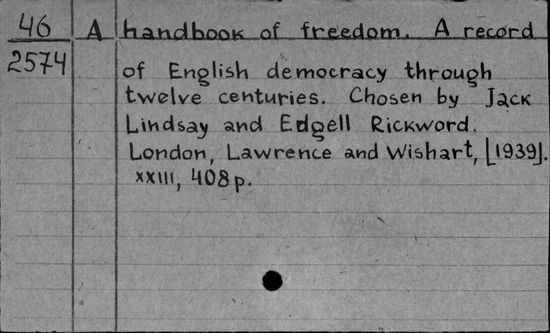 46 A handbook of freedom. A record
2574
of English democracy through
twelve centuries. Chosen by Jack
Lindsay and Edgell Rickword.
London, Lawrence and Wishart, [1939].
XXIII, 408 p.